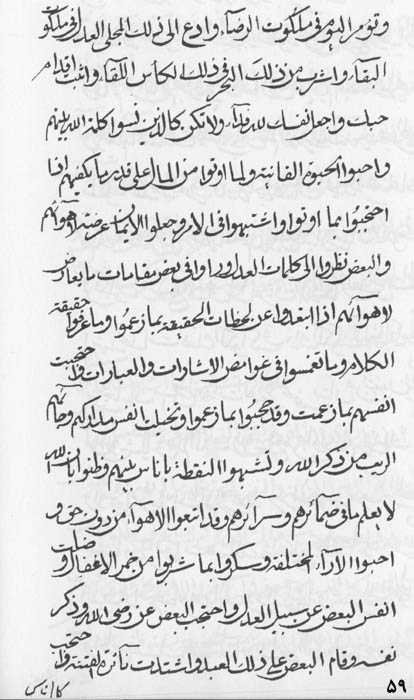 وتؤمر اليوم فى ملكوت الرضاء وادع الى ذلك المجلى العدل فى ملكوت
البقاء واشرب من ذلك البحر فى ذلك الكأس اللقاء واثبت اقدام
حبك واجعل نفسك لله فداء ولا تكن كالذين نسوا كلمة الله بينهم
واحبوا الحيوة الفانية ولما اوتوا من المال على قدر ما يكفيهم اذا
احتجبوا بما اوتوا واشتبهوا فى الامر وجعلوا الايمان عرضة لاهوائهم
والبعض نظروا الى كلمات العدل وراوا فى بعض مقامات ما يعارض
لاهوائهم اذا ابعدوا عن لحظات الحقيقة بما زعموا وما عرفوا حقيقة
الكلام وما تغمسوا فى غوامض الاشارات والعبارات واحتجبت
انفسهم بما زعمت وقد حجبوا بما زعموا وتخيلت انفس مداركهم وحالهم
الريب من ذكر الله وتشبهوا النقطة باناس بينهم وظنوا بان الله
لا يعلم ما فى ضمائرهم وسرآئرهم وقد اتبعوا الاهوآء من دون حق و
احبوا الارآء المختلفة وسكروا بما شربوا من خمر الاغفال و ضلت
انفس البعض عن سبيل العدل واحتجب البعض عن رضى الله وذكر
نفسه وقام البعض على ذلك العبد واشتدت نآئرة الفتنة واحتجب
كل اناس
٥٩